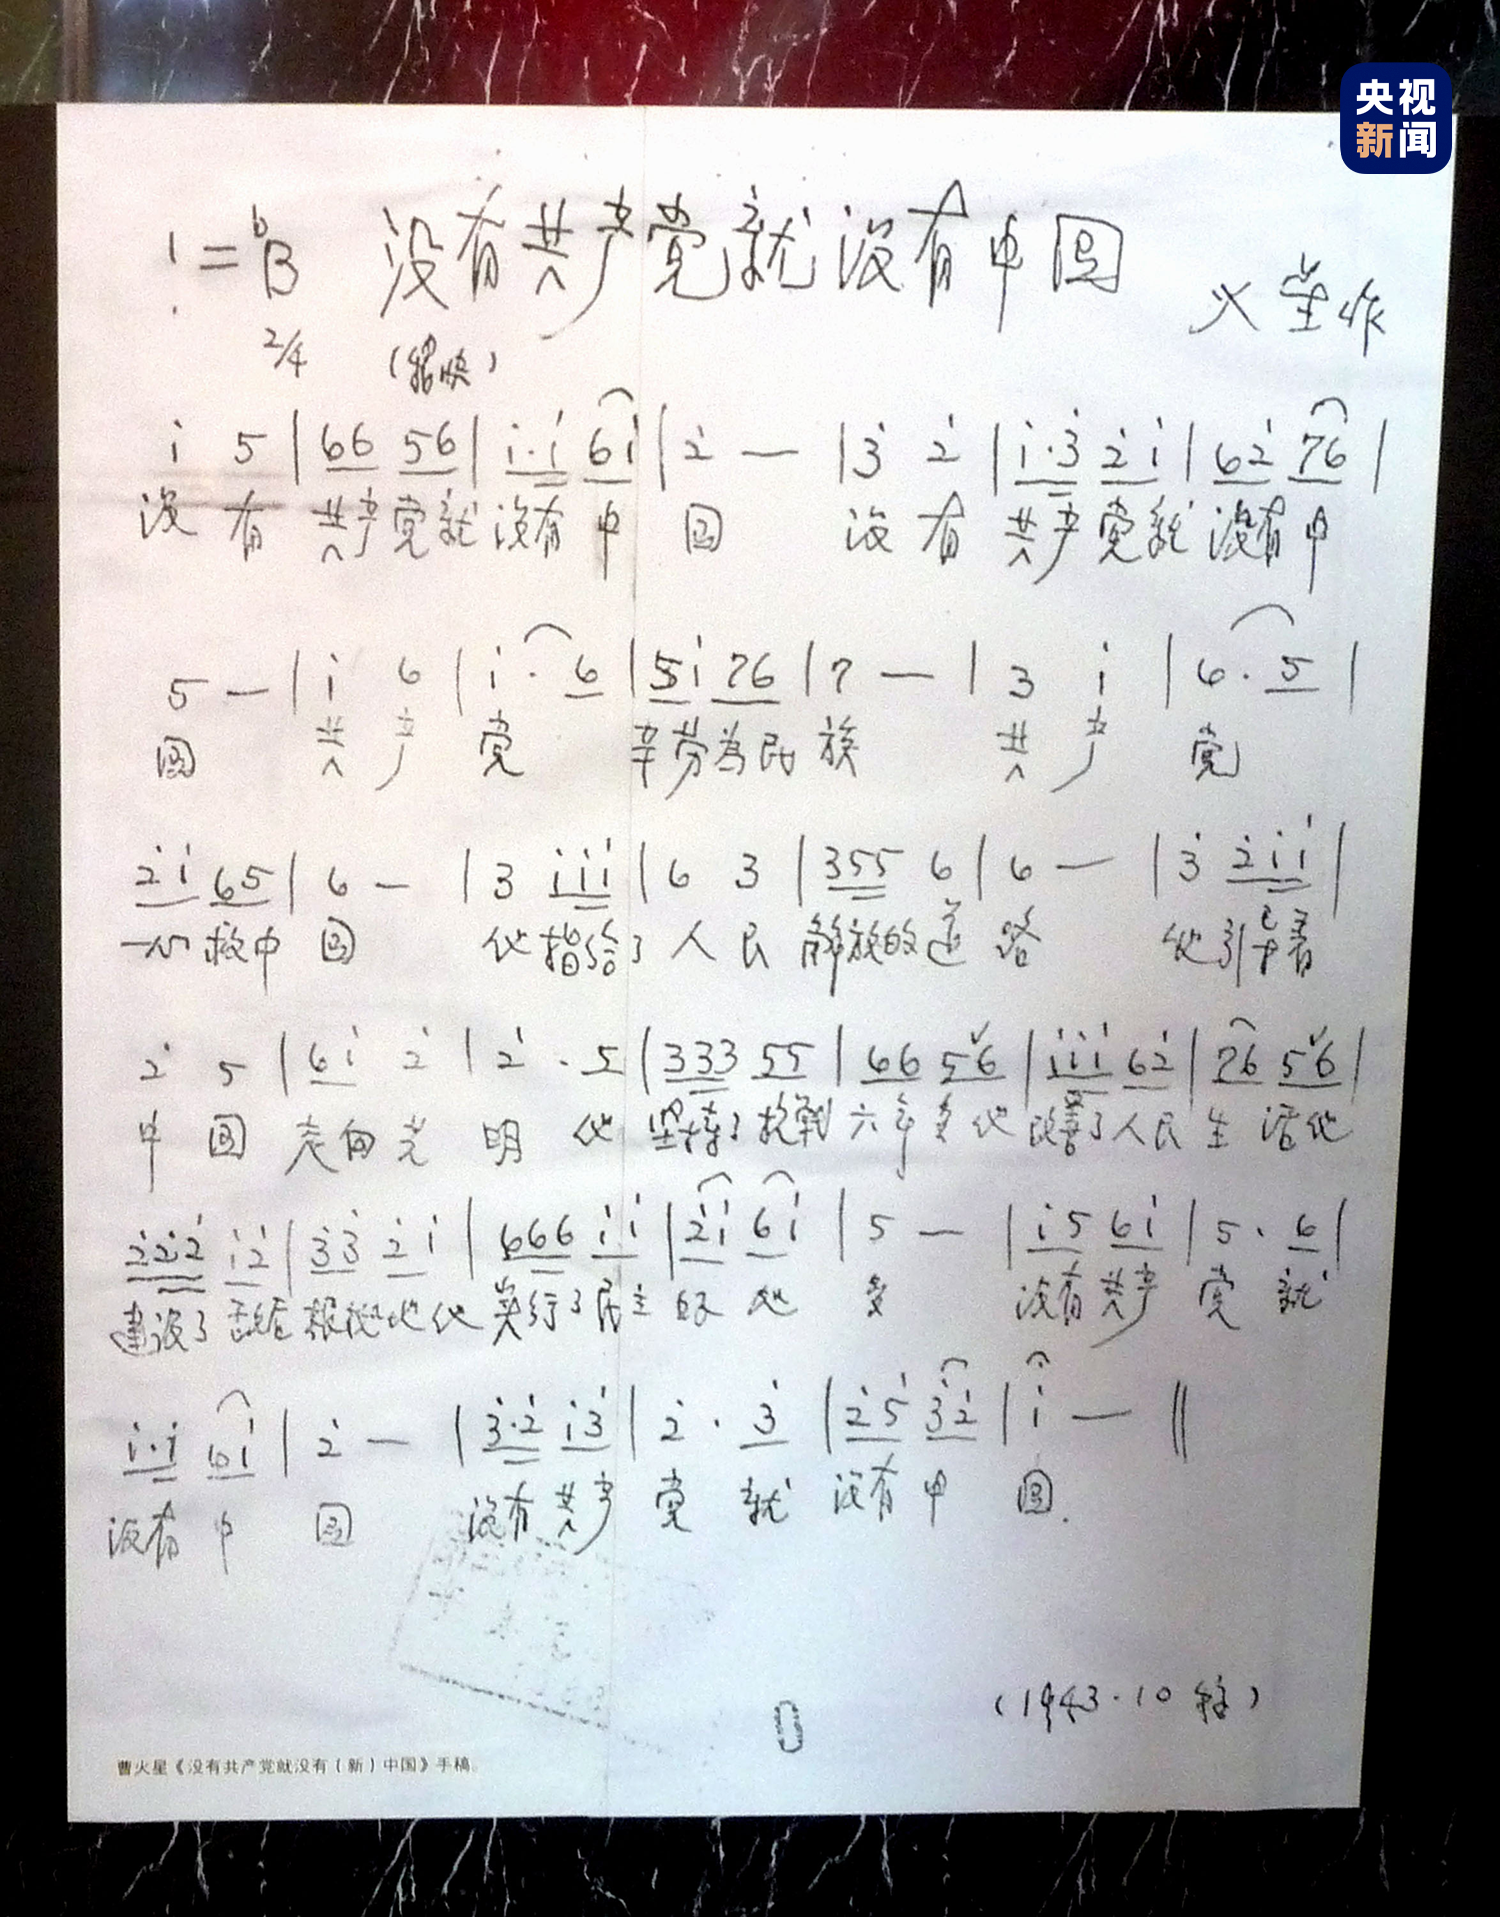 央视
新闻
1=♭B 没有共产党就没有中国
火星作
2/4 (稍快)
i 5 | 66 56 | i·i 6i | 2̇ — | 3̇ 2̇ | i·3̇ 2̇i | 62̇ 76 |
没 有 共产党就 没有 中 国 没 有 共产党就 没有中
5 — | i 6 | i· 6 | 5i 76 | 7 — | 3 i | 6· 5 |
国 共 产 党 辛劳为民 族 共 产 党
2̇i 65 | 6 — | 3 iii | 6 3 | 355 6 | 6 — | 3̇ 2̇ii |
一心救中 国 他指给了 人 民 解放的道 路 他引导着
2̇ 5 | 6i 2̇ | 2̇ · 5 | 333 55 | 66 56 | iii 62̇ | 76 56 |
中 国 走向光 明 他 坚持了抗战 六年多他 改善了人民 生 活他
2̇2̇2̇ i2̇ | 3̇3̇ 2̇i | 666 ii | 2̇i 6i | 5 — | i5 6i | 5· 6 |
建设了敌后根据地他 实行了民主 好 处 多 没有共产 党 就
i·i 6i | 2̇ — | 3̇·2̇ i3̇ | 2̇ · 3̇ | 2̇5 3̇2̇ | i — ‖
没有 中 国 没有 共产 党 就 没有 中 国.
(1943·10 )
曹火星《没有共产党就没有(新)中国》手稿。